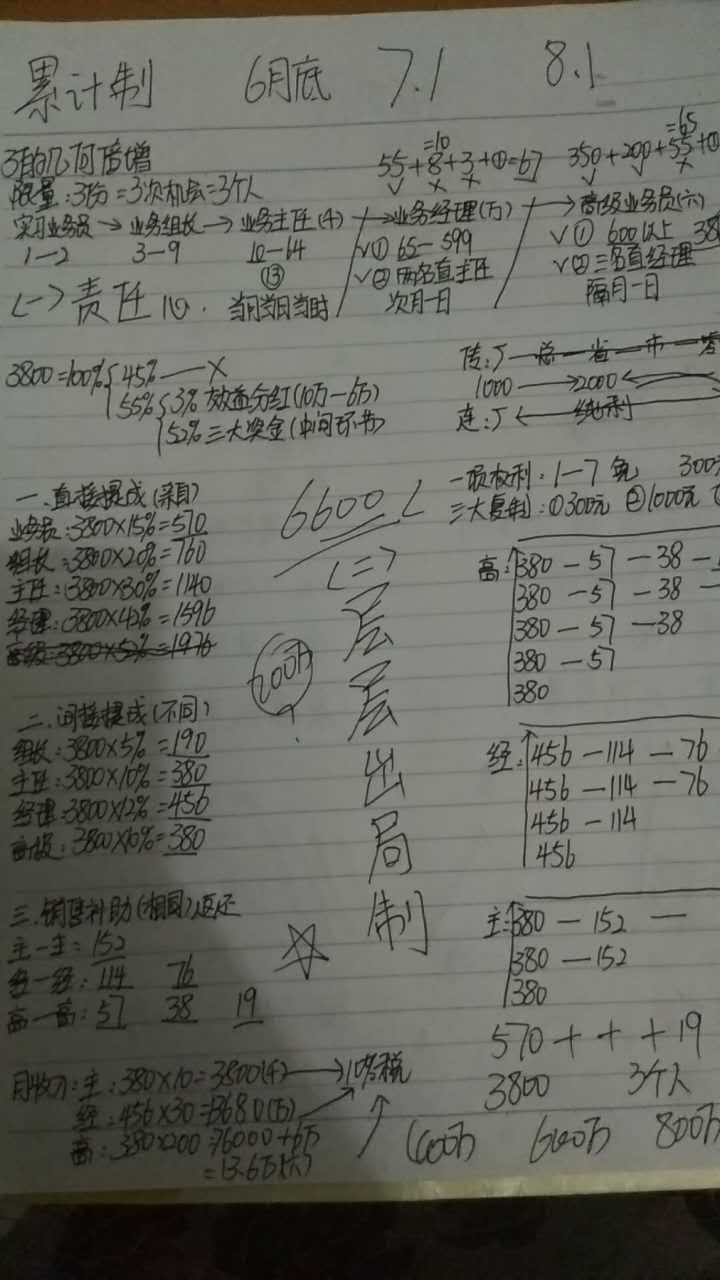 累计制 6月底 7.1 8.1
3的几何倍增
=10
55+8+3+①=67
=65
350+200+55+①
限量:3份=3次机会=3个人
实习业务员→业务组长→业务主任(千)→业务经理(万)→高级业务员(六)
1-2 3-9 10-64 ① 65-599 ① 600以上 38
⑬ ② 两名直主任 ② 三名直经理
(一)责任心. 当月当日当时 次月一日 隔月一日
3800=100% 45%—X
55% 3% 效益分红(10万-6万)
52% 三大奖金(中间环节)
传:厂—总—省—市—零
1000→2000
连:厂←纯利
一、直接提成(亲自)
业务员:3800×15%=570
组长:3800×20%=760
主任:3800×30%=1140
经理:3800×42%=1596
高级:3800×52%=1976
6600
(二)
层层出局制
200万
一损权利:1-7免 300
三大复制:①300元 ②1000元
高:380-57-38-
380-57-38-
380-57-38
380-57
380
二、间接提成(不同)
组长:3800×5%=190
主任:3800×10%=380
经理:3800×12%=456
高级:3800×10%=380
经:456-114-76
456-114-76
456-114
456
三、销售补助(相同)返还
主一主:152
经一经:114 76
高一高:57 38 19
主:380-152-
380-152
380
570+ + +19
3800 3个人
月收入:主:380×10=3800(千)→10%税
经:456×30=13680(万)
高:380×200=76000+6万
=13.6万(六)
600万 800万